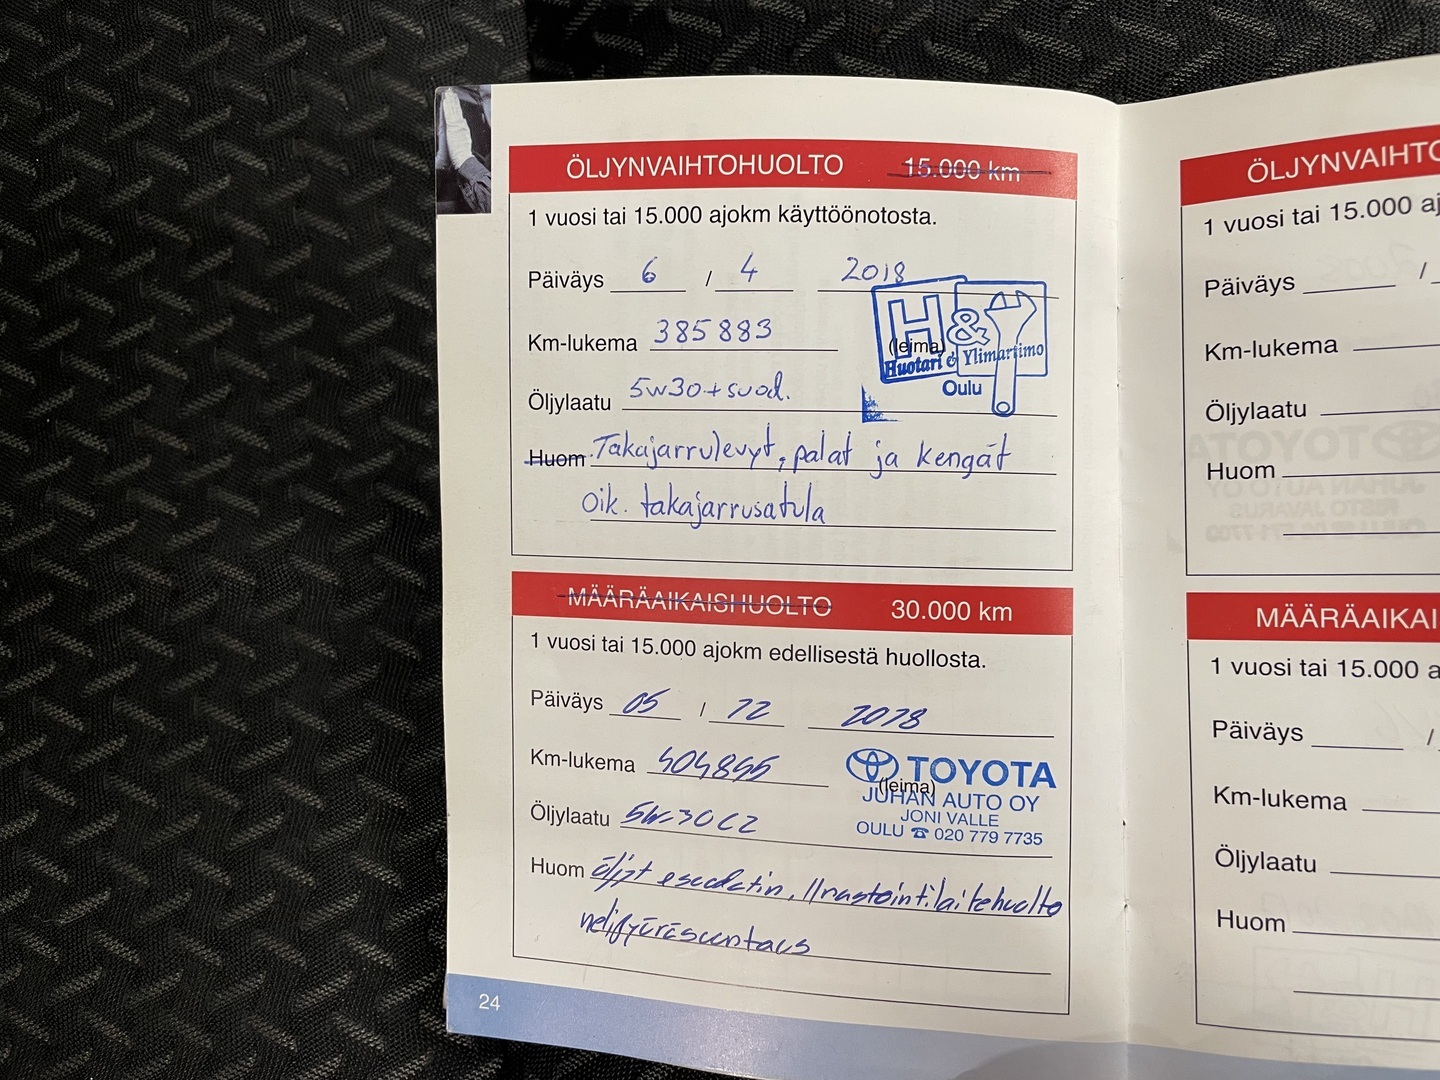 ÖLJYNVAIHTOHUOLTO 15.000 km
1 vuosi tai 15.000 ajokm käyttöönotosta.
Päiväys 6 / 4 2018
Km-lukema 385883
H &
(leima)
Huotari & Ylimartimo
Oulu
Öljylaatu 5w30+suod.
Huom Takajarrulevyt, palat ja kengät
oik. takajarrusatula
MÄÄRÄAIKAISHUOLTO 30.000 km
1 vuosi tai 15.000 ajokm edellisestä huollosta.
Päiväys 05 / 12 2018
Km-lukema
TOYOTA
(leima)
JUHAN AUTO OY
JONI VALLE
OULU ☎ 020 779 7735
Öljylaatu 5W30C2
Huom öljyt Ilmastointilaitehuolto
nelipyöräsuuntaus
24
ÖLJYNVAIHTO
1 vuosi tai 15.000
Päiväys /
Km-lukema
Öljylaatu
Huom
MÄÄRÄAIKAI
1 vuosi tai 15.000
Päiväys /
Km-lukema
Öljylaatu
Huom